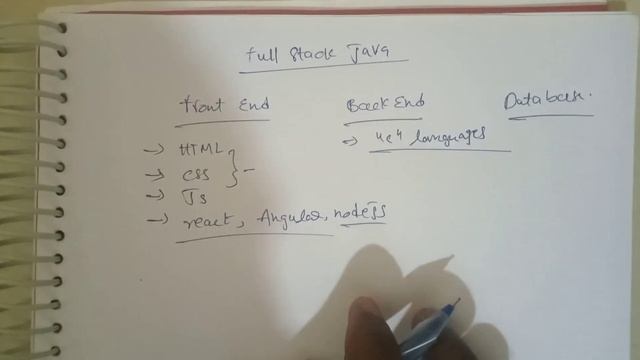 Full Stack Java
Front End
Back End
Database.
→ HTML
→ CSS
→ Js
→ react, Angular, nodeJS
→ "c" languages